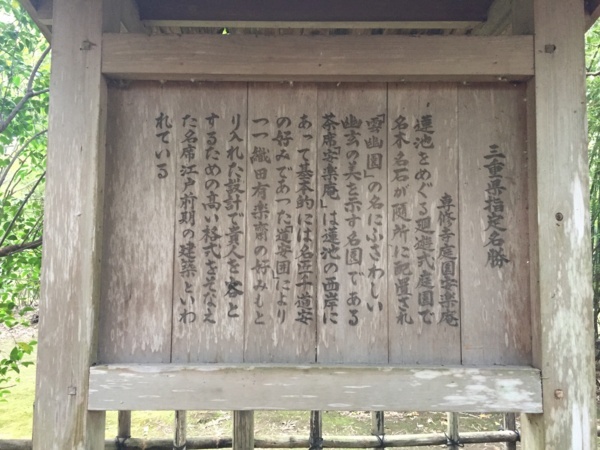 三重県指定名勝
専修寺庭園安楽庵
蓮池をめぐる廻遊式庭園で
名木名石が随所に配置され
「雲幽園」の名にふさわしい
幽玄の美を示す名園である
茶席「安楽庵」は蓮池の西岸に
あって基本的には名匠千道安
の好みであった「道安囲」により
つつ織田有楽斎の好みもと
り入れた設計で貴人を客と
するための高い格式をそなえ
た名席江戸前期の建築といわ
れている